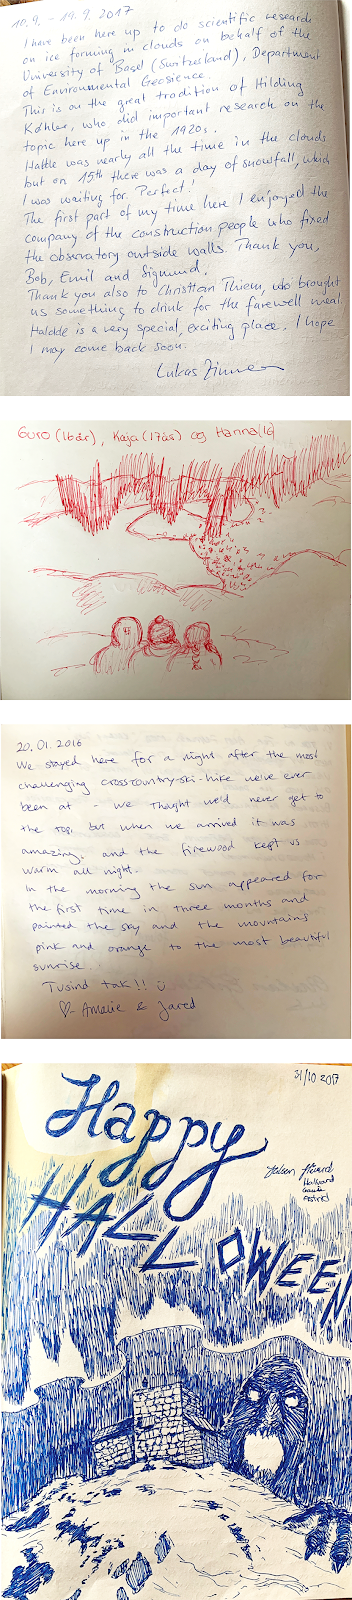 10.9. - 19.9. 2017
I have been here up to do scientific research
on ice forming in clouds on behalf of the
University of Basel (Switzerland), Department
of Environmental Geoscience.
This is on the great tradition of Hilding
Köhler, who did important research on the
topic here up in the 1920s.
Haldde was nearly all the time in the clouds
but on 15th there was a day of snowfall, which
I was waiting for. Perfect!
The first part of my time here I enjoyed the
company of the construction people who fixed
the observatory outside walls. Thank you,
Bob, Emil and Sigmund.
Thank you also to Christian Thiem, who brought
us something to drink for the farewell meal.
Haldde is a very special, exciting place. I hope
I may come back soon.
Lukas
Guro (16år), Kaja (17år) og Hanna (16
20.01.2016
We stayed here for a night after the most
challenging crosscountry-ski-hike we've ever
been at - we thought we'd never get to
the top, but when we arrived it was
amazing, and the firewood kept us
warm all night.
In the morning the sun appeared for
the first time in three months and
painted the sky and the mountains
pink and orange to the most beautiful
sunrise.
Tusind tak!!
Amalie & Jared
31/10 2017
Happy
HALLOWEEN
Astrid